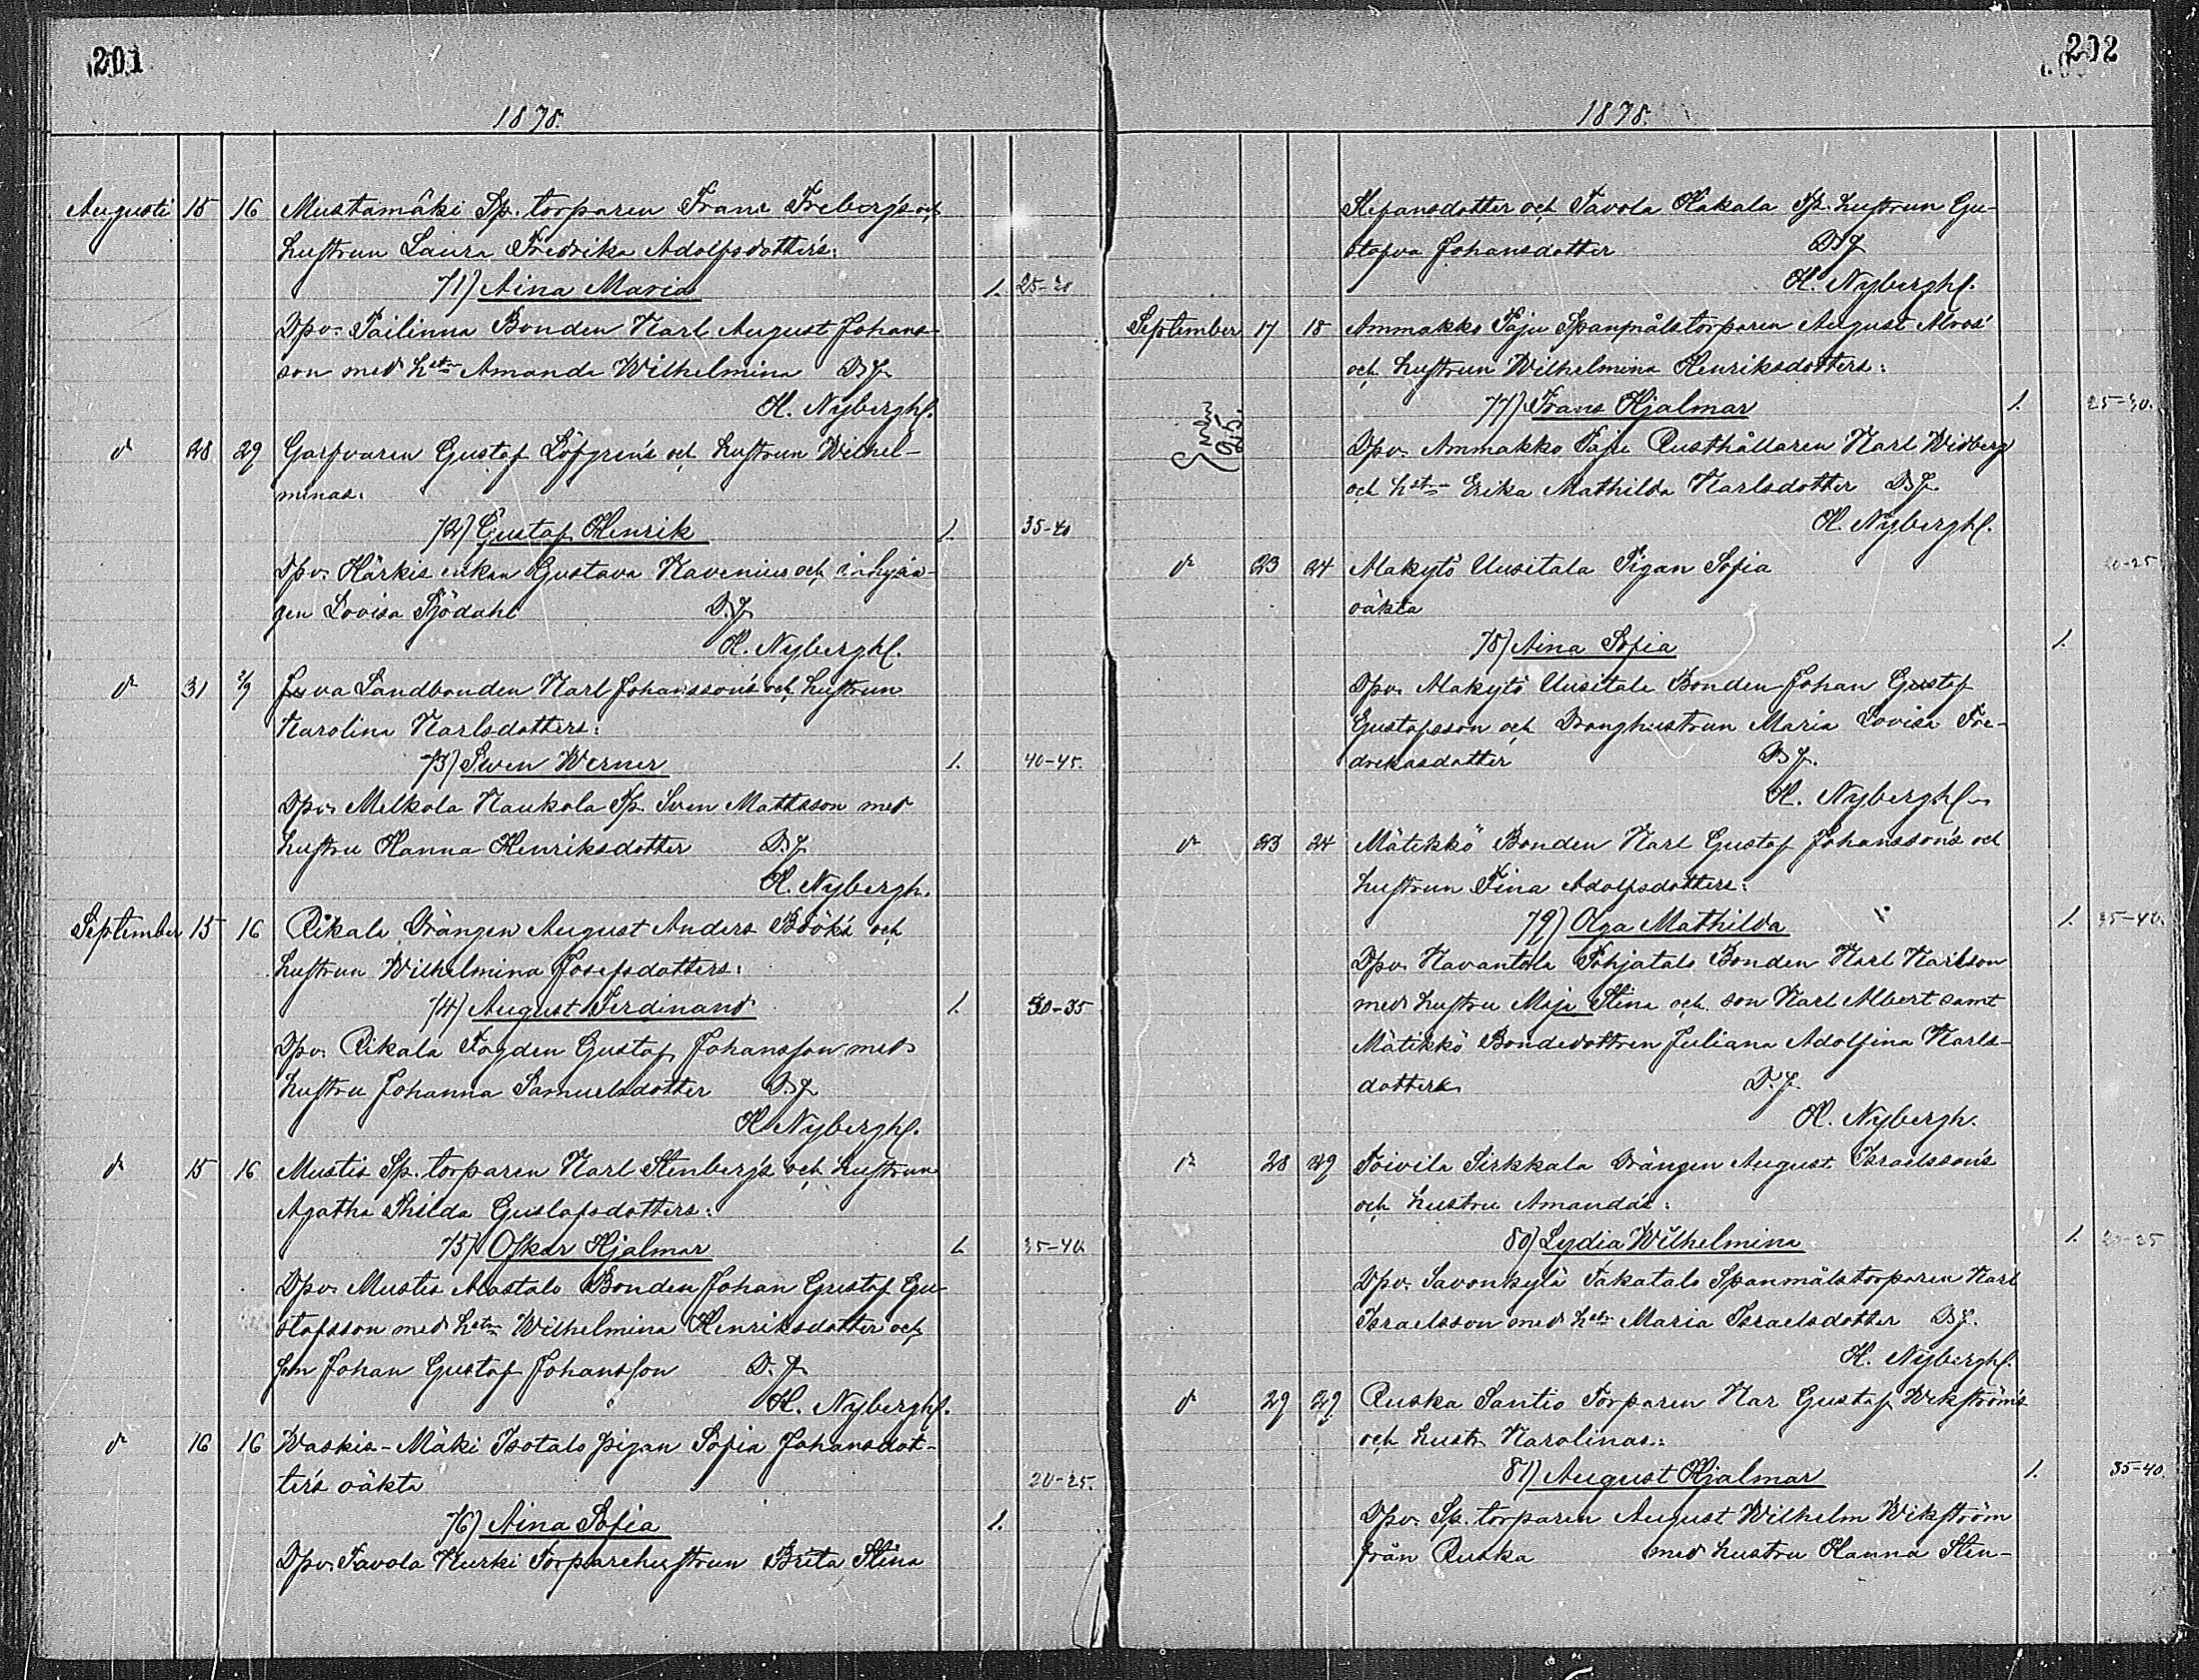 201
1878.
Augusti 15 16 Mustamäki Sp. torparen Frans Frebergs och
hustrun Laura Fredrika Adolfsdotters:
71) Aina Maria 1. 25-30
Dpv. Pailinna Bonden Karl August Johans-
son med hstr Amanda Wilhelmina D.J.
H. Nybergh.
d 28 29 Garfvaren Gustaf Löfgren's och hustrun Wilhel-
minas.
72) Gustaf Henrik 1. 35-40
Dpv. Härkis enkan Gustava Navenius och inhysin-
gen Lovisa Sjödahl D.J.
H. Nybergh.
d 31 2/9 Juva Landbonden Karl Johansson's och hustrun
Karolina Karlsdotters:
73) Swen Werner 1. 40-45.
Dpv. Melkola Kaukola Sp. Sven Mattsson med
hustru Hanna Henriksdotter D.J.
H. Nybergh.
September 15 16 Rikala Drängen August Anders Böök's och
hustrun Wilhelmina Josefsdotters:
74) August Ferdinand 1. 30-35
Dpv. Rikala Fogden Gustaf Johansson med
hustru Johanna Samuelsdotter D.J.
H. Nybergh.
d 15 16 Mustis Sp. torparen Karl Stenberg's och hustrun
Agatha Thilda Gustafsdotters:
75) Oskar Hjalmar 1. 35-40
Dpv. Mustis Alastalo Bonden Johan Gustaf Gu-
stafsson med hstr Wilhelmina Henriksdotter och
son Johan Gustaf Johansson D.J.
H. Nybergh.
d 16 16 Waskis-Mäki Isotalo pigan Sofia Johansdot-
ter's oäkta 20-25.
76) Aina Sofia 1.
Dpv. Tavola Kurki Torparehustrun Brita Stina
202
1878.
Stefansdotter och Tavola Hakala Sp. hustrun Gu-
stafva Johansdotter D.J.
H. Nybergh.
September 17 18 Ammakko Paju Spanmålstorparen August Alros'
och hustrun Wilhelmina Henriksdotters:
77) Frans Hjalmar 1. 25-30.
Dpv. Ammakko Paju Rusthållaren Karl Widberg
och hstr Erika Mathilda Karlsdotter D.J.
H. Nybergh.
d 23 24 Makytö Uusitala Pigan Sofia 20-25
oäkta
78) Aina Sofia 1.
Dpv. Makytö Uusitalo Bonden Johan Gustaf
Gustafsson och Dränghustrun Maria Lovisa Fre-
driksdotter D.J.
H. Nybergh.
d 23 24 Mätikkö Bonden Karl Gustaf Johansson's och
hustrun Fina Adolfsdotters:
79) Olga Mathilda 1. 35-40.
Dpv. Kavantola Pohjatalo Bonden Karl Karlsson
med hustru Maja Stina och son Karl Albert samt
Mätikkö Bondedottren Juliana Adolfina Karls-
dotter. D.J.
H. Nybergh.
d 28 29 Toivila Sirkkala Drängen August Israelsson's
och hustru Amanda's:
80) Lydia Wilhelmina 1. 20-25
Dpv. Savonkylä Takatalo Spanmålstorparen Karl
Israelsson med hstr Maria Israelsdotter D.J.
H. Nybergh.
d 29 29 Ruska Santio Torparen Kar Gustaf Wekström's
och hustr. Karolinas:
81) August Hjalmar 1. 35-40
Dpv. Sp. torparen August Wilhelm Wikström
från Ruska med hustru Hanna Sten-